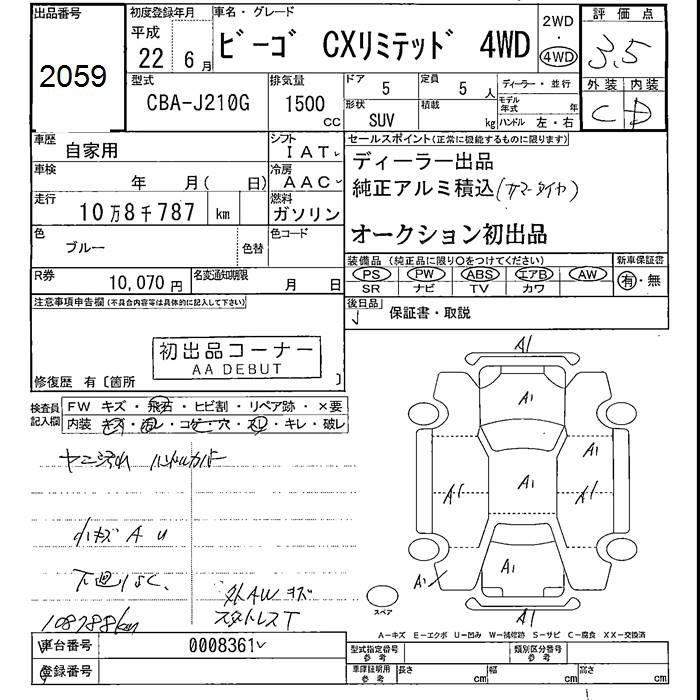 出品番号 初度登録年月 車名・グレード 2WD 評価点
2059 平成 22 6月 ビーゴ CXリミテッド 4WD ・ 4WD 3.5
型式 CBA-J210G 排気量 1500 CC ドア 5 定員 5 人 ディーラー・並行 外装 内装
形状 SUV 積載 kg モデル年式 年 ハンドル 左・右 C D
車歴 自家用 シフト IAT セールスポイント(正常に機能するものに限ります)
車検 年 月( 日) 冷房 AAC ディーラー出品
純正アルミ積込(サマータイヤ)
走行 10万8千787 km 燃料 ガソリン
オークション初出品
色 ブルー 色替 色コード
装備品(純正品に限り○をつけてください) 新車保証書
R券 10,070円 名変通知期限 月 日 PS PW ABS エアB AW 有・無
SR ナビ TV カワ
注意事項申告欄(不具合内容等は具体的に記入して下さい) 後日品 保証書・取説
初出品コーナー
AA DEBUT
修復歴 有〔箇所 〕
検査員記入欄 FW キズ・飛石・ヒビ割・リペア跡・×要
内装 キズ・汚レ・コゲ・穴・スレ・キレ・破レ
ヤニ汚れ ハンドルカバー
小キズ A U
下廻りSC
外AWキズ
スタットレスT
108788km
A1
A1
A1
A1
A1
A1
A1
A1
A1
スペア
A-キズ E-エクボ U-凹み W-補修跡 S-サビ C-腐食 XX-交換済
車台番号 0008361 型式指定番号 参考 類別区分番号 参考
登録番号 車庫証明用 参考 長さ cm 幅 cm 高さ cm